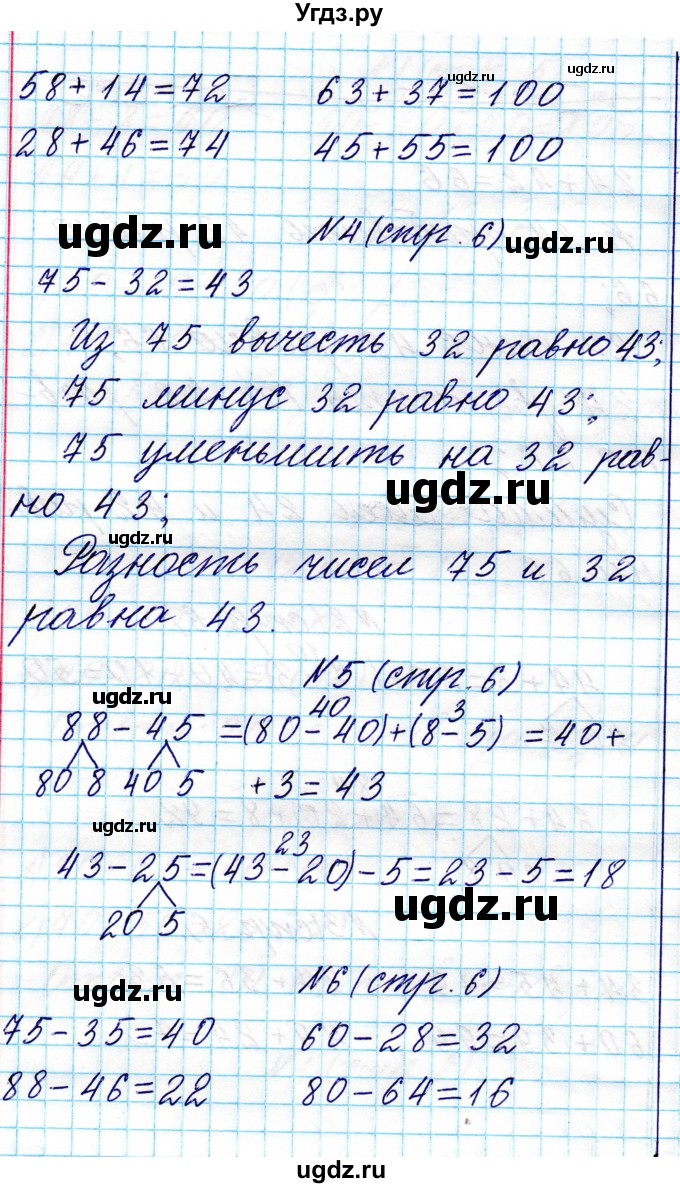 Угдз.ру
58+14=72 63+37=100
ugdz.ru ugdz.ru
28+46=74 45+55=100
ugdz.ru №4 (стр. 6) ugdz.ru
75-32=43
Из 75 вычесть 32 равно 43;
75 минус 32 равно 43;
75 уменьшить на 32 рав-
ugdz.ru
но 43;
ugdz.ru
Разность чисел 75 и 32
равна 43.
№5 (стр. 6)
ugdz.ru
40 3
88-45=(80-40)+(8-5)=40+
80 8 40 5 +3=43
ugdz.ru
23
43-25=(43-20)-5=23-5=18
20 5
ugdz.ru
№6 (стр. 6)
ugdz.ru
75-35=40 60-28=32
88-46=22 80-64=16
ugdz.ru